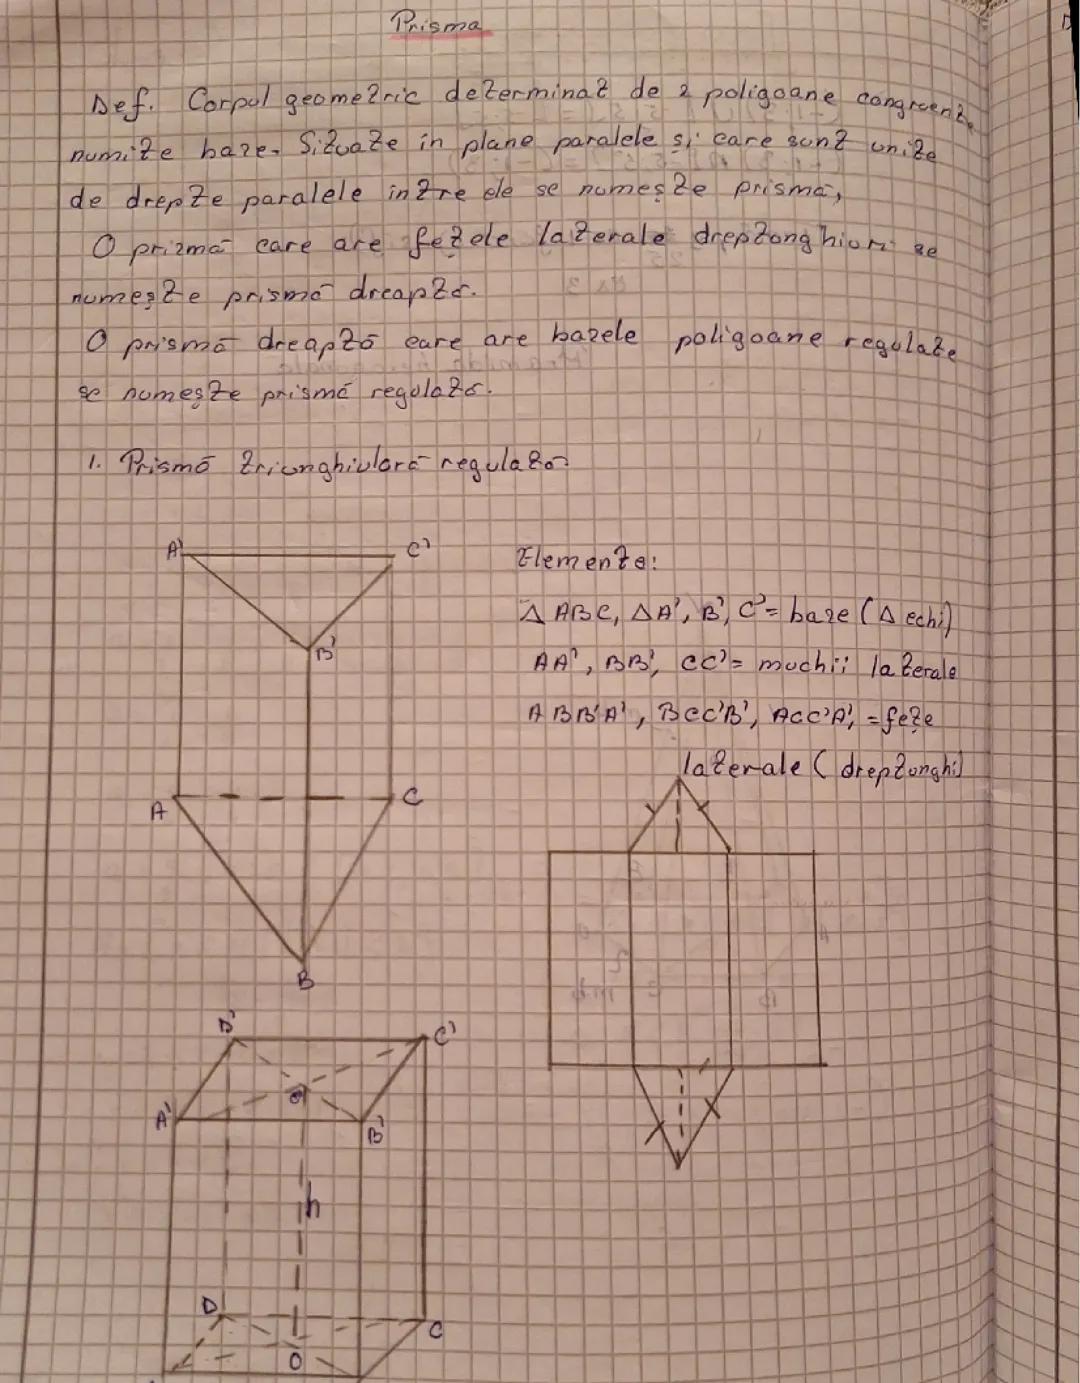 Prisma
Def. Corpul geometric determinat de 2 poligoane congruente
numite baze. Situate în plane paralele și care sunt unite
de drepte paralele între ele se numește prismă,
O prizmă care are fețele laterale dreptonghiuri se
numește prismă dreaptă.
O prismă dreaptă care are bazele poligoane regulate
se numește prismă regulată.
1. Prismă triunghiulară regulată
A' C'
B'
A C
B
Elemente:
Δ ABC, ΔA', B', C' = baze (Δ echi)
AA', BB', CC' = muchii laterale
ABB'A', BCC'B', ACC'A', = fețe
laterale (dreptonghi)
D' C'
O
A' B'
h
D C
O